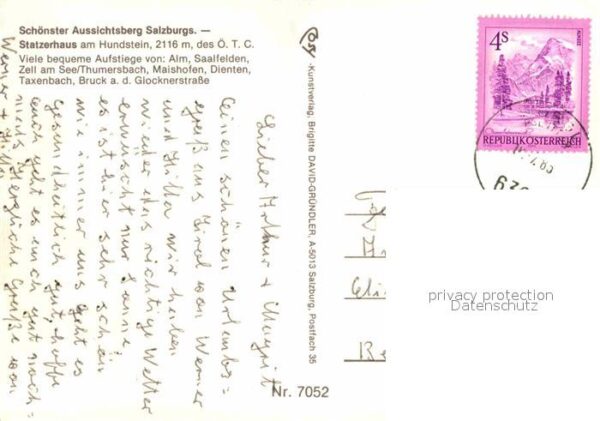 Schönster Aussichtsberg Salzburgs. —
Statzerhaus am Hundstein, 2116 m, des Ö. T. C.
Viele bequeme Aufstiege von: Alm, Saalfelden,
Zell am See/Thumersbach, Maishofen, Dienten,
Taxenbach, Bruck a. d. Glocknerstraße
Lieber Arthur + Margrit
Einen schönen Urlaubs=
gruß aus Tirol von Werner
und Hilde. Wir haben
wieder das richtige Wetter
erwischt nur Sonne
es ist hier sehr schön
wie immer uns geht es
gesundheitlich gut, hoffe
euch geht es auch gut noch=
mals herzliche Grüße von
Werner + Hilde
-Kunstverlag, Brigitte DAVID-GRÜNDLER, A-5013 Salzburg, Postfach 35
Nr. 7052
4s
REPUBLIK ÖSTERREICH
privacy protection
Datenschutz